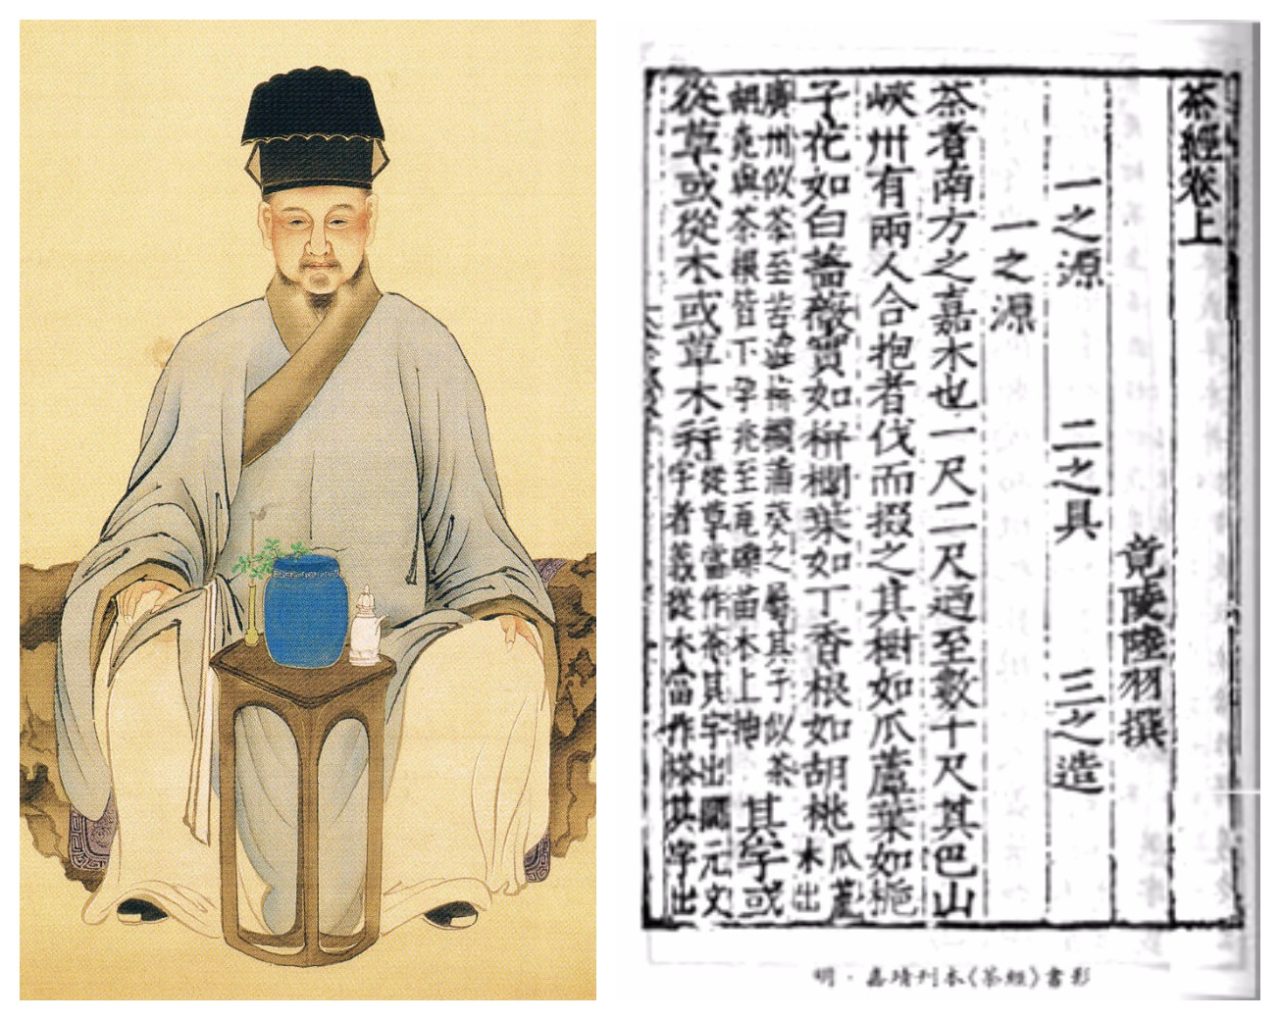 茶經卷上
竟陵陸羽撰
一之源 二之具 三之造
一之源
茶者南方之嘉木也一尺二尺迺至數十尺其巴山
峽州有兩人合抱者伐而掇之其樹如瓜蘆葉如梔
子花如白薔薇實如栟櫚葉如丁香根如胡桃瓜蘆木出
廣州似茶至苦澁栟櫚蒲葵之屬其子似茶胡桃與茶根皆下孕兆至瓦礫苗木上抽其字或
從草或從木或草木并從草當作茶其字出開元文字者義從木當作搽其字出
明·嘉靖刊本《茶經》書影